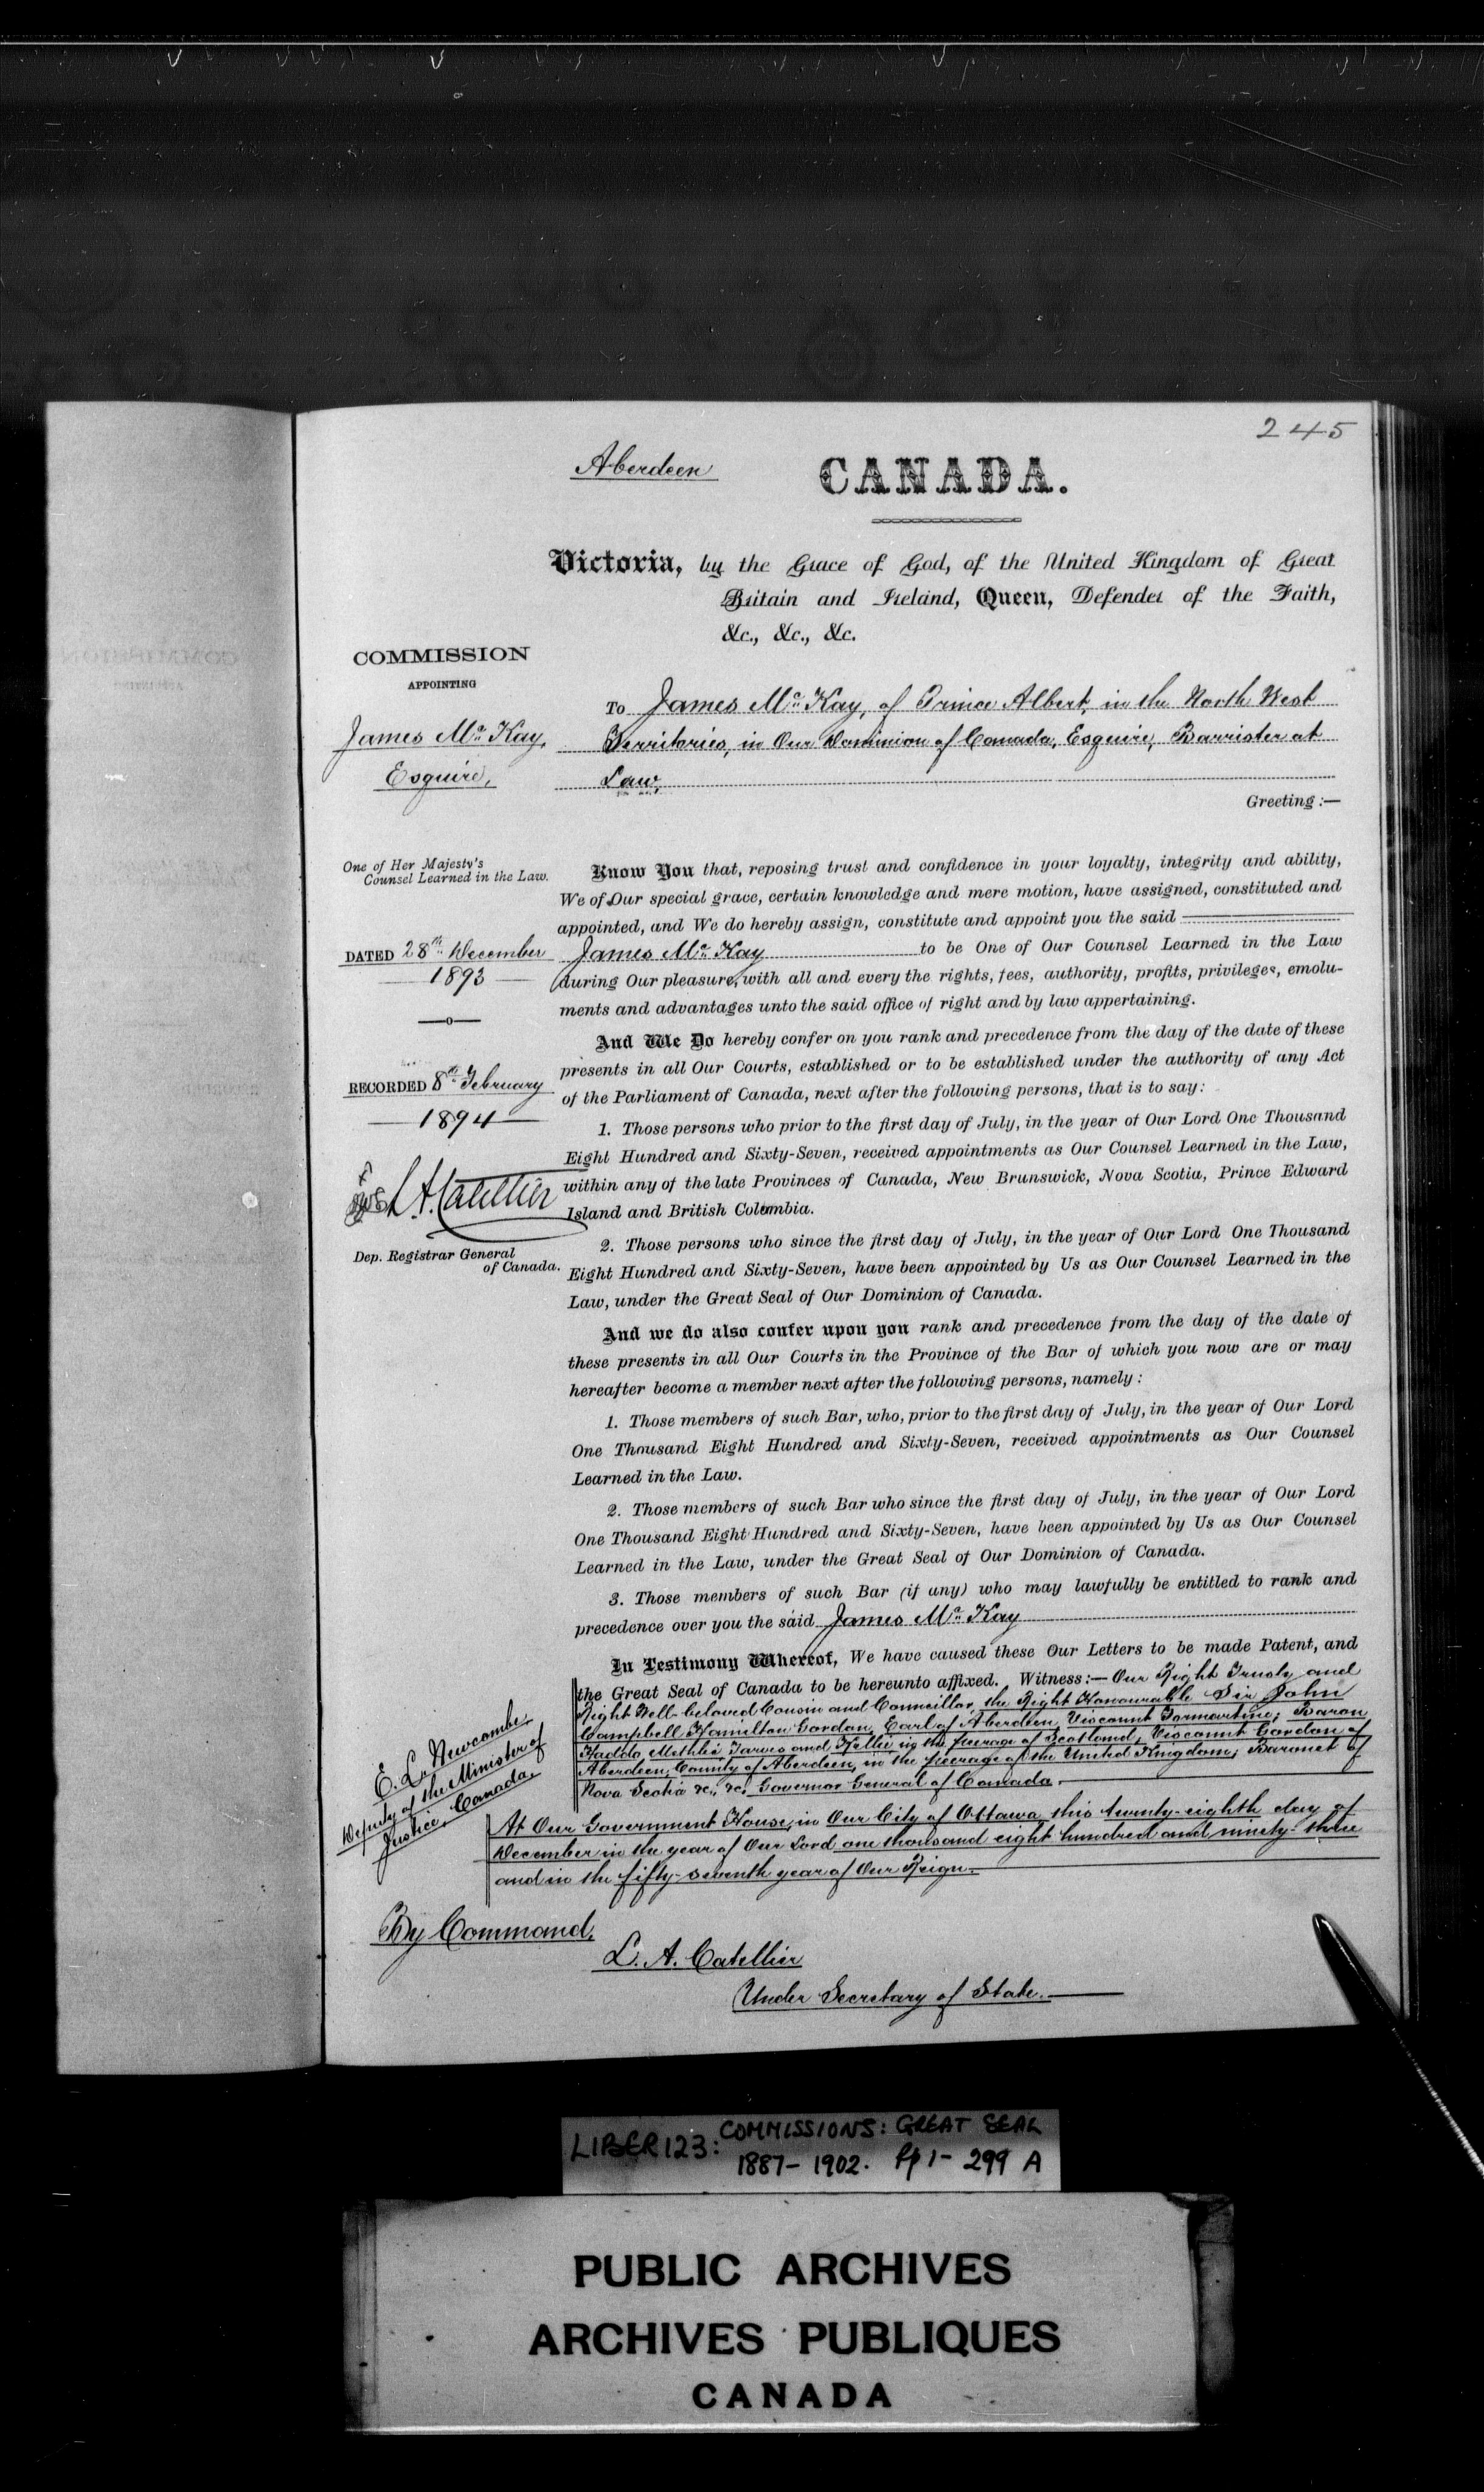 245
Aberdeen
CANADA.
Victoria, by the Grace of God, of the United Kingdom of Great
Britain and Ireland, Queen, Defender of the Faith,
&c., &c., &c.
COMMISSION
APPOINTING
James Mc Kay,
Esquire,
To James Mc Kay, of Prince Albert, in the North West
Territories, in Our Dominion of Canada, Esquire, Barrister at
Law,
Greeting :—
One of Her Majesty's
Counsel Learned in the Law.
DATED 28th December
1893
—o—
RECORDED 8th February
1894
L. A. Catellier
Dep. Registrar General
of Canada.
Know You that, reposing trust and confidence in your loyalty, integrity and ability,
We of Our special grace, certain knowledge and mere motion, have assigned, constituted and
appointed, and We do hereby assign, constitute and appoint you the said
James Mc Kay to be One of Our Counsel Learned in the Law
during Our pleasure, with all and every the rights, fees, authority, profits, privileges, emolu-
ments and advantages unto the said office of right and by law appertaining.
And We Do hereby confer on you rank and precedence from the day of the date of these
presents in all Our Courts, established or to be established under the authority of any Act
of the Parliament of Canada, next after the following persons, that is to say:
1. Those persons who prior to the first day of July, in the year of Our Lord One Thousand
Eight Hundred and Sixty-Seven, received appointments as Our Counsel Learned in the Law,
within any of the late Provinces of Canada, New Brunswick, Nova Scotia, Prince Edward
Island and British Columbia.
2. Those persons who since the first day of July, in the year of Our Lord One Thousand
Eight Hundred and Sixty-Seven, have been appointed by Us as Our Counsel Learned in the
Law, under the Great Seal of Our Dominion of Canada.
And we do also confer upon you rank and precedence from the day of the date of
these presents in all Our Courts in the Province of the Bar of which you now are or may
hereafter become a member next after the following persons, namely:
1. Those members of such Bar, who, prior to the first day of July, in the year of Our Lord
One Thousand Eight Hundred and Sixty-Seven, received appointments as Our Counsel
Learned in the Law.
2. Those members of such Bar who since the first day of July, in the year of Our Lord
One Thousand Eight Hundred and Sixty-Seven, have been appointed by Us as Our Counsel
Learned in the Law, under the Great Seal of Our Dominion of Canada.
3. Those members of such Bar (if any) who may lawfully be entitled to rank and
precedence over you the said James Mc Kay
In Testimony Whereof, We have caused these Our Letters to be made Patent, and
the Great Seal of Canada to be hereunto affixed. Witness:— Our Right Trusty and
Right Well-beloved Cousin and Councillor, the Right Honourable Sir John
Campbell Hamilton Gordon, Earl of Aberdeen, Viscount Formartine, Baron
Haddo, Methlic, Tarves and Kellie in the peerage of Scotland, Viscount Gordon of
Aberdeen, County of Aberdeen, in the peerage of the United Kingdom; Baronet of
Nova Scotia &c., &c. Governor General of Canada.
At Our Government House, in Our City of Ottawa, this twenty-eighth day of
December in the year of Our Lord one thousand eight hundred and ninety-three
and in the fifty-seventh year of Our Reign.
E. L. Newcombe,
Deputy of the Minister of
Justice, Canada.
By Command,
L. A. Catellier
Under Secretary of State.
LIBER 123: COMMISSIONS: GREAT SEAL
1887-1902. Pp 1- 299 A
PUBLIC ARCHIVES
ARCHIVES PUBLIQUES
CANADA